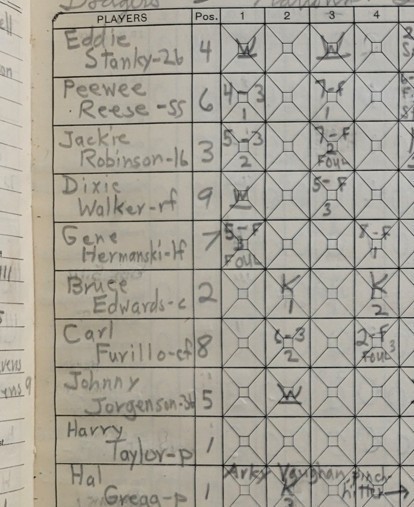 PLAYERS Pos. 1 2 3 4
Eddie
Stanky-2b 4 W W
Peewee
Reese-SS 6 4-3 7-F
1 1
Jackie
Robinson-1b 3 5-3 7-F
2 2
Foul
Dixie
Walker-rf 9 W 5-F
3
Gene
Hermanski-lf 7 5-F 8-F
3 1
Foul
Bruce
Edwards-c 2 K K
1 2
Carl
Furillo-cf 8 6-3 2-F
2 Foul 3
Johnny
Jorgenson-3b 5 W
Harry
Taylor-p 1
Hal Arky Vaughan pinch
Gregg-p 1 K hitter →
3